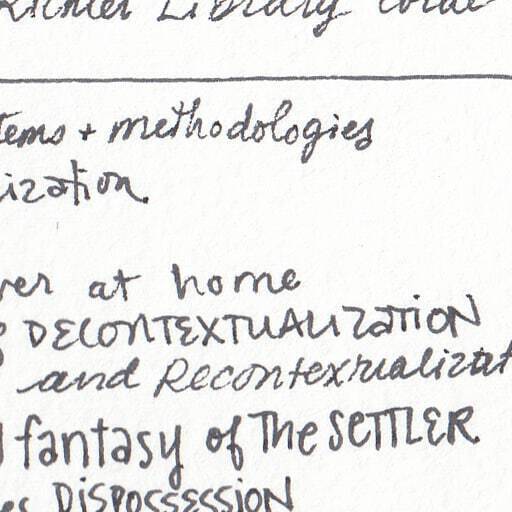 Library
+ methodologies
ization.
at home
DECONTEXTUALIZATION
and Recontextualizat
fantasy of The SETTLER
DISPOSSESSION